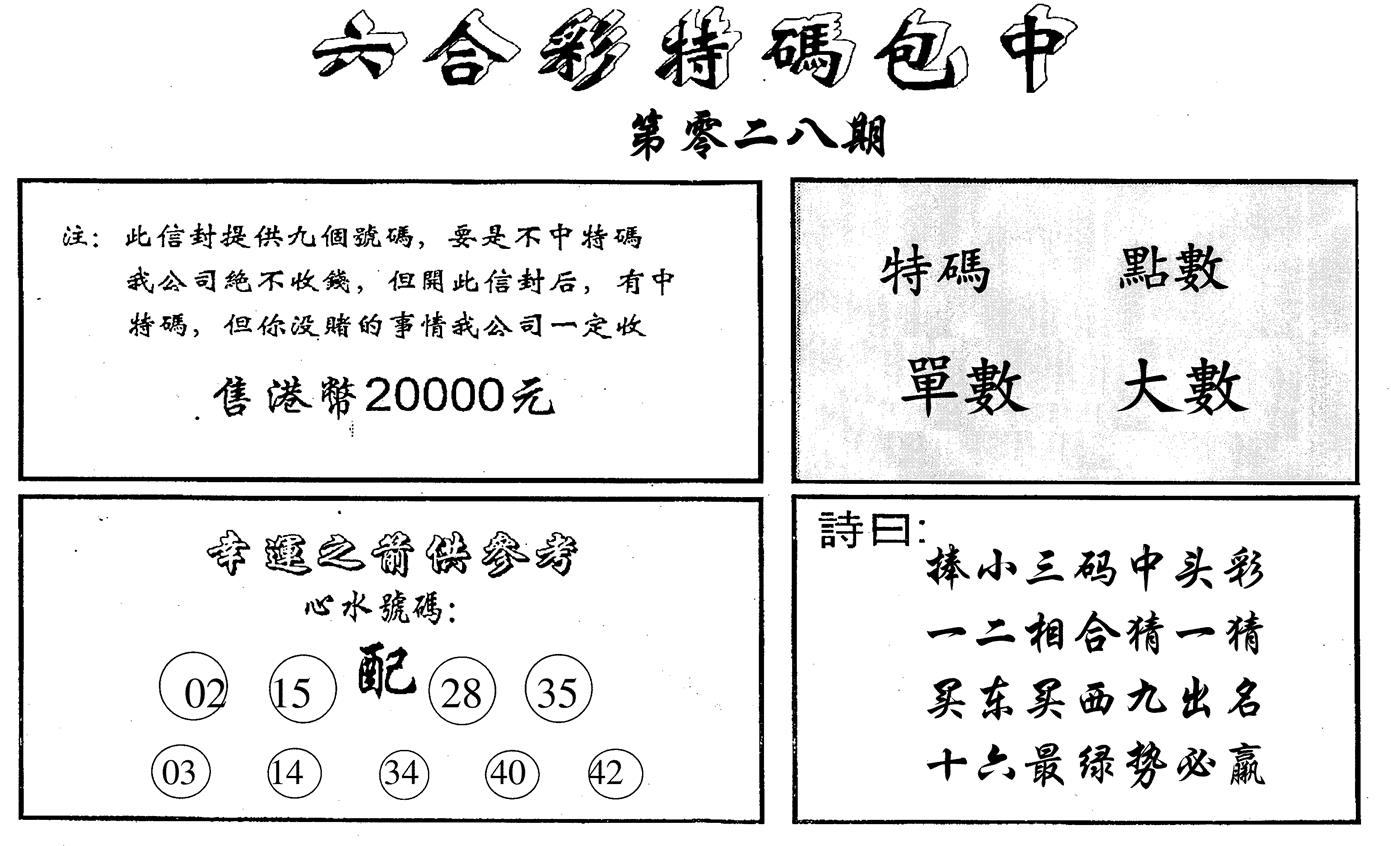 六合彩特碼包中
第零二八期
注：此信封提供九個號碼，要是不中特碼
我公司絕不收錢，但開此信封后，有中
特碼，但你没賭的事情我公司一定收
售港幣20000元
特碼 點數
單數 大數
幸運之箭供參考
心水號碼：
02 15 配 28 35
03 14 34 40 42
詩曰：
捧小三码中头彩
一二相合猜一猜
买东买西九出名
十六最绿势必赢